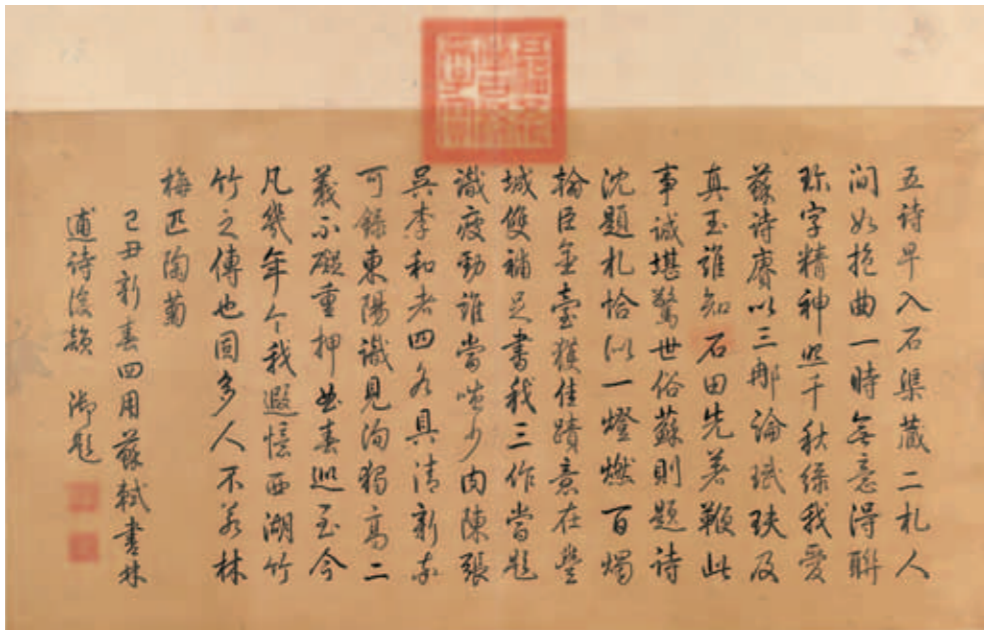 五詩早入石渠藏二札人
間如抱曲一時無意得聯
珎字精神照千秋緣我愛
蘇詩賡以三那論珷玞及
真玉誰知石田先著鞭此
事誠堪驚世俗蘇則題詩
沈題札恰似一燈燃百燭
翰臣無臺獲佳蹟意在豐
城雙補足書我三作當題
識瘦勁誰當嗤少肉陳張
吳李和者四各具清新亦
可録東陽識見洵獨高二
義不礙重押曲春巡至今
凡幾年个我遐憶西湖竹
竹之傳也固多人不若林
梅匹陶菊
己丑新春四用蘇軾書林
逋詩後韻 御題